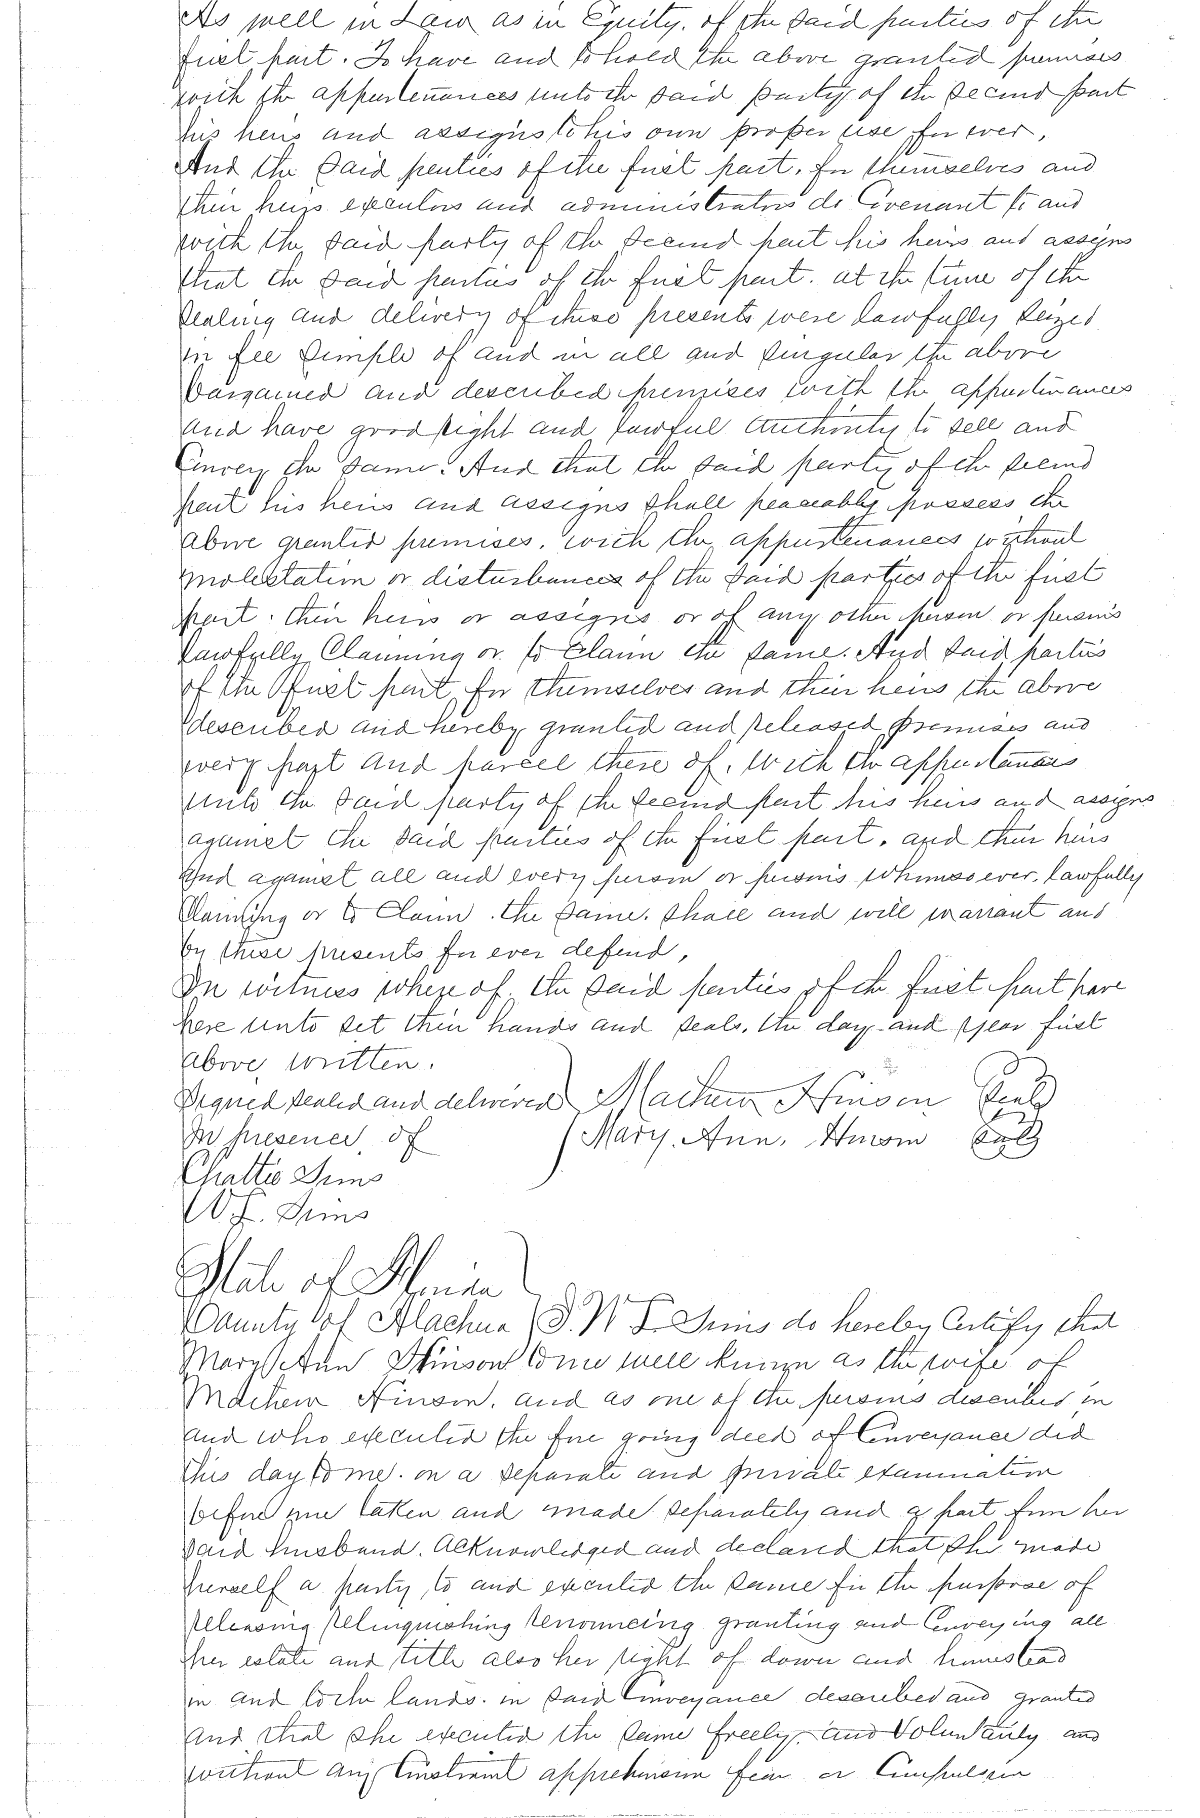 As well in Law as in Equity. of the said parties of the
first part. To have and to hold the above granted premises
with the appurtenances unto the said party of the second part
his heirs and assigns to his own proper use for ever,
And the said parties of the first part. for themselves and
their heirs executors and administrators do Covenant to and
with the said party of the second part his heirs and assigns
that the said parties of the first part. at the time of the
sealing and delivery of these presents were lawfully seized
in fee simple of and in all and singular the above
bargained and described premises with the appurtinances
and have good right and lawful authority to sell and
Convey the same. And that the said party of the second
part his heirs and assigns shall peaceably possess the
above granted premises. with the appurtenances without
molestation or disturbances of the said parties of the first
part. their heirs or assigns or of any other person or persons
lawfully Claiming or to Claim the same. And said parties
of the first part for themselves and their heirs the above
described and hereby granted and released premises and
every part and parcel there of. with the appurtanances
unto the said party of the second part his heirs and assigns
against the said parties of the first part. and their heirs
And against all and every person or persons whomsoever. lawfully
Claiming or to Claim the same. shall and will warrant and
by these presents for ever defend,
In witness where of. the said parties of the first part have
here unto set their hands and seals. the day and year first
above written.
Signed sealed and delivered ) Mathew Hinson (Seal)
In presence of ) Mary. Ann. Hinson (Seal)
Chattie Sims
W. F. Sims
State of Florida )
County of Alachua ) I. W F. Sims do hereby Certify that
Mary Ann Hinson to me well known as the wife of
Mathew Hinson. and as one of the persons described in
and who executed the fore going deed of Conveyance did
this day to me. on a separate and private examination
before me taken and made separately and a part from her
said husband. Acknowledged and declared that she made
herself a party to and executed the same for the purpose of
releasing relinquishing renouncing granting and Conveying all
her estate and title also her right of dower and homestead
in and to the lands. in said Conveyance described and granted
and that she executed the same freely. and Voluntarily and
without any Constraint apprehension fear or Compulsion